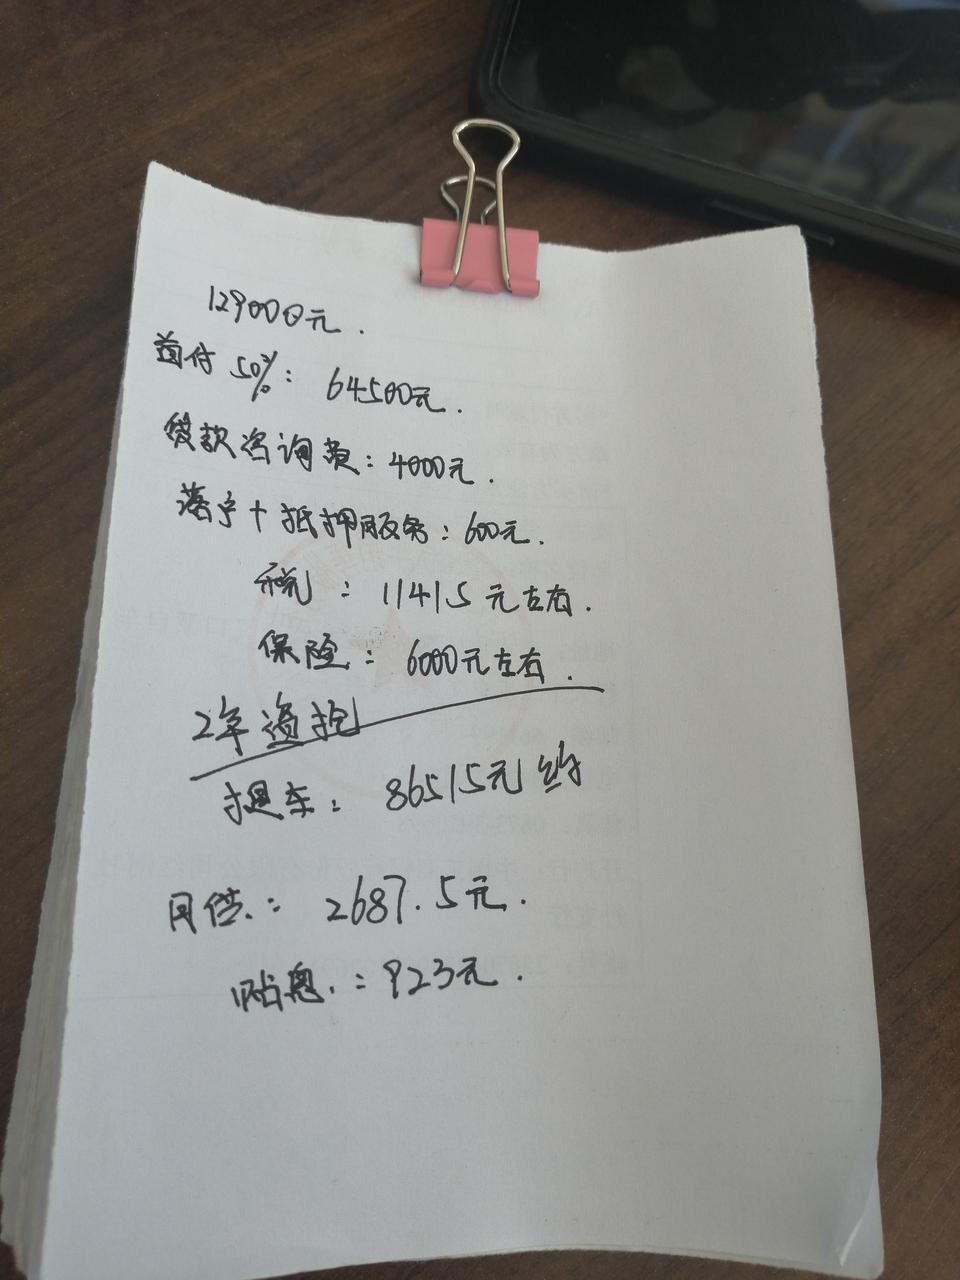 129000元.
首付 50%: 64500元.
贷款咨询费: 4000元.
落户+抵押服务: 600元.
税: 11415元左右.
保险: 6000元左右.
2年盗抢
提车: 86515元 约
月偿.: 2687.5元.
贴息.: 923元.